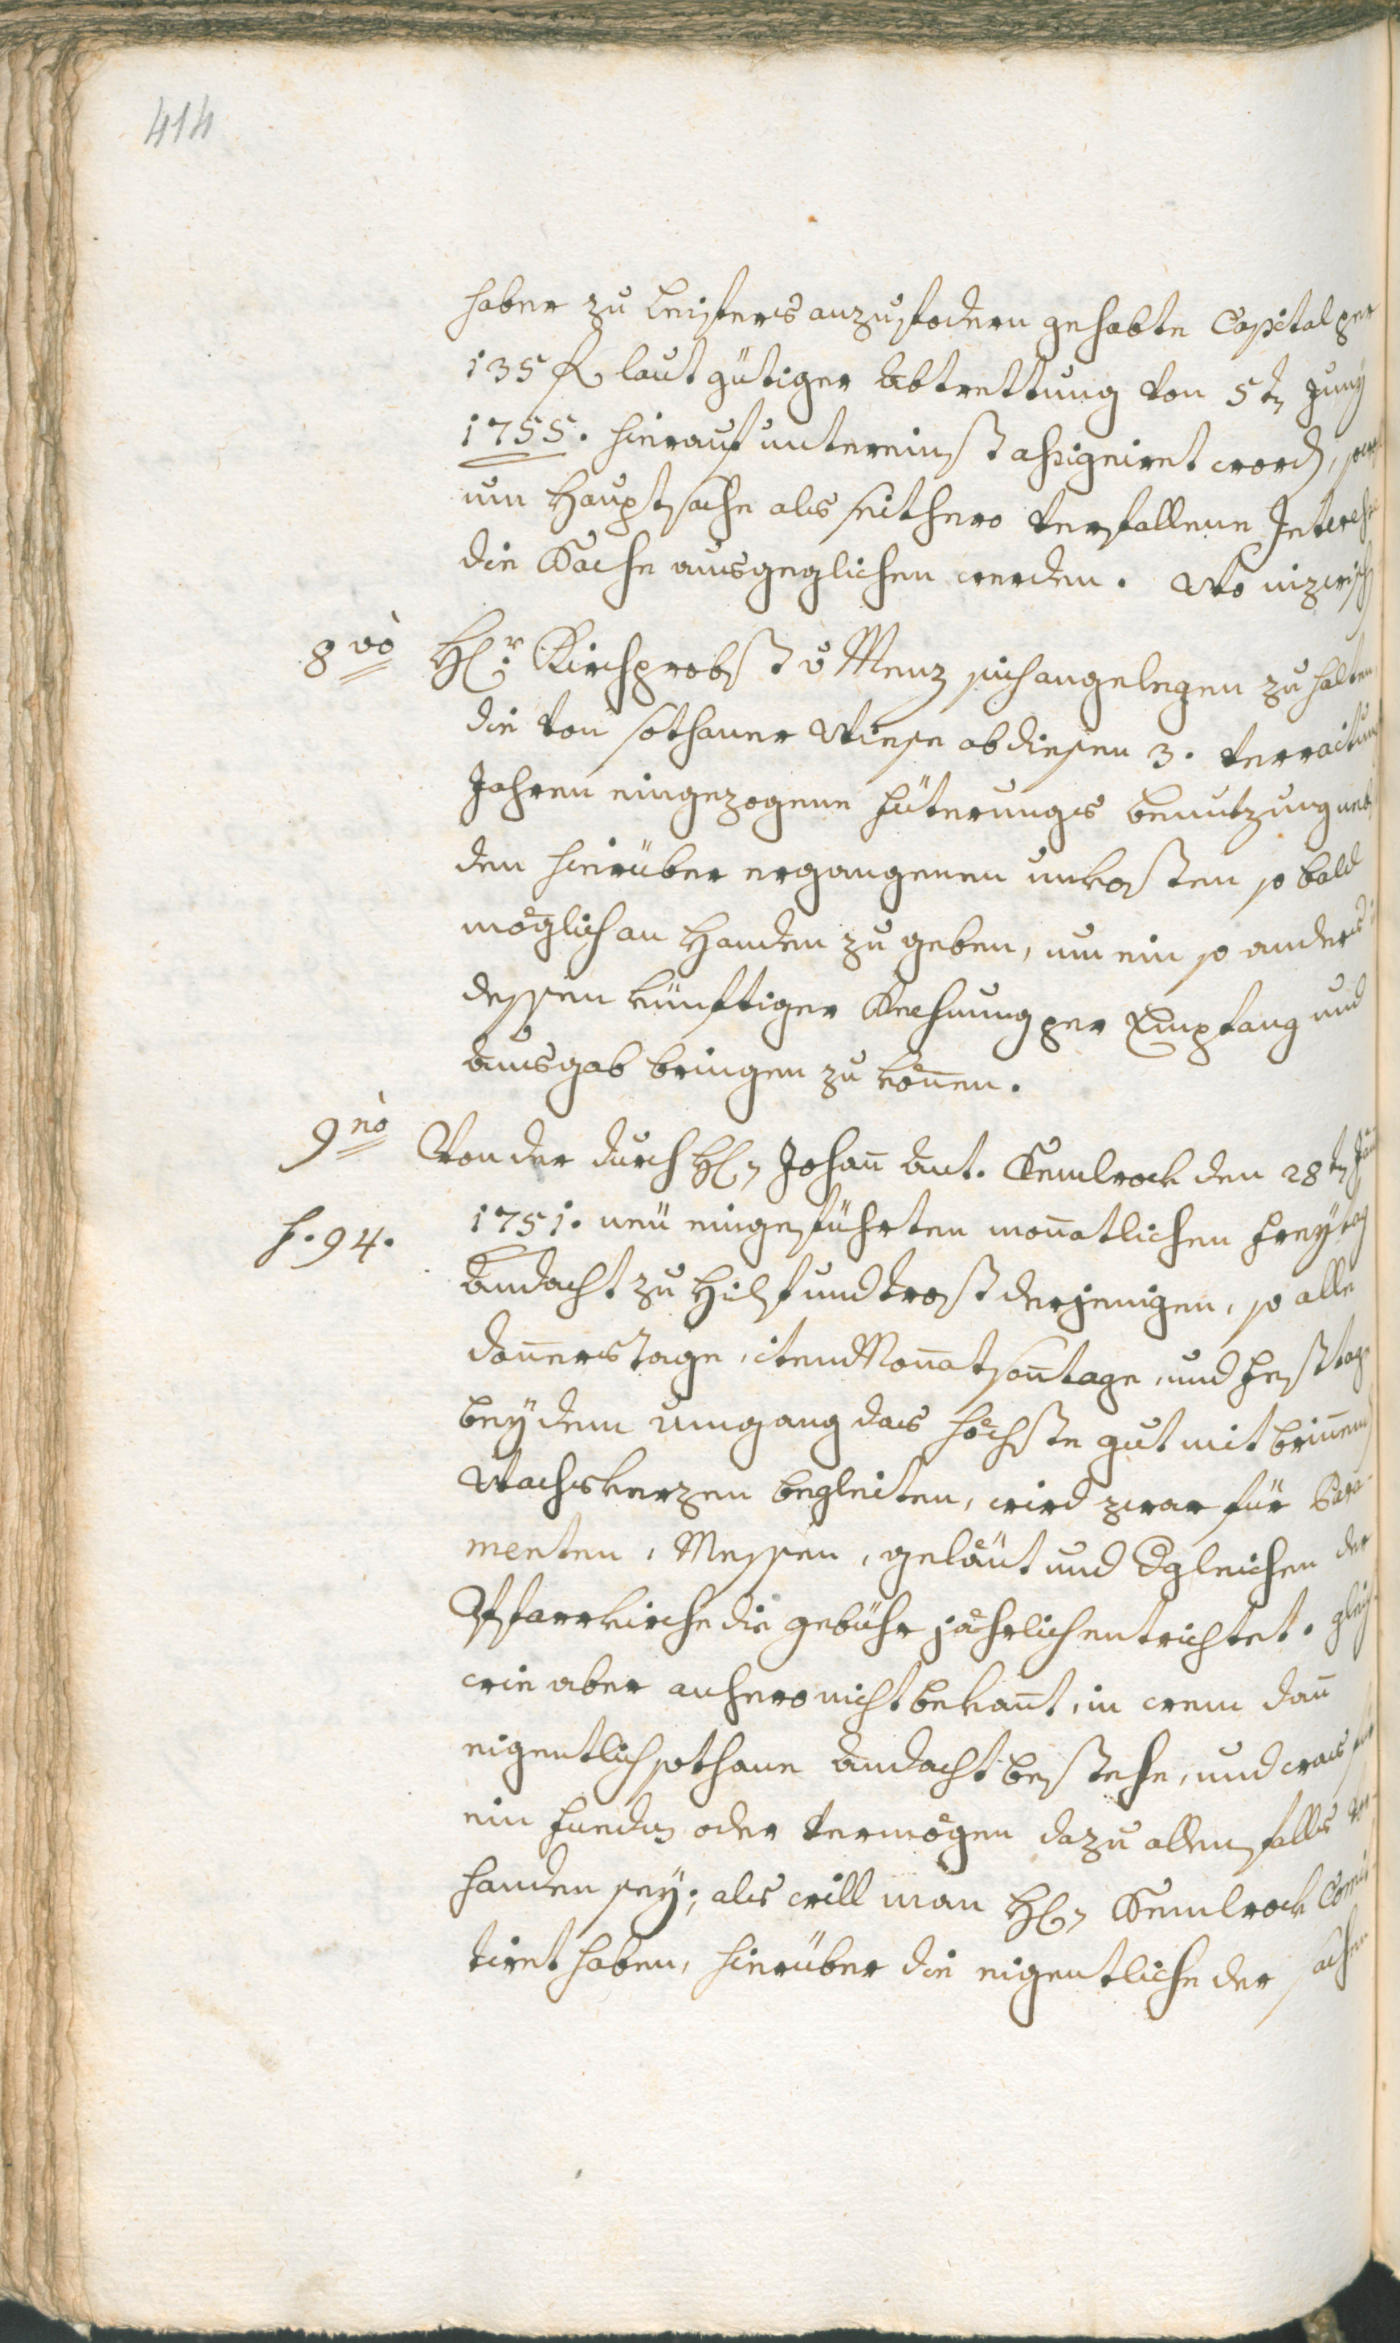 414
haber zu leisters anzufodern gehabte Capital per
135 fl laut gütiger Abtrettung von 5tn Juny
1755. hierauf untereinst assigniret word,
um Hauptsache als seithero verfallene Interesse
die Sache ausgeglichen werden. Wo inzwisch
8vo Hr: Kirchprobst v Menz sich angelegen zu halten
die von sothaner Wiese ab diesen 3. verraitung
Jahren eingezogene fütterungs benutzung neb
den hierüber ergangenen unkosten so bald
möglich an Handen zu geben, um ein so anders
dessen künftiger Rechnung per Empfang und
Ausgab bringen zu koñen.
9no Von der durch Hn Johañ Ant. Semlrock den 28tn
f. 94. 1751. neü eingeführten moñatlichen Freytag
Andacht zu Hilf und trost derjenigen, so alle
Doñerstage, item Moñatsoñtage, und Festtage
bey dem umgang das höchste gut mit briñend
Wachskerzen begleiten, wird zwar für Para-
menten, Messen, geläut und dgleichen der
Pfarrkirche die gebühr jährlich entrichtet. gleich
wie aber anhero nicht bekañt, in wem dañ
eigentlich sothane Andacht bestehe, und was für
ein fundus oder vermögen dazu allenfalls vor-
handen sey; als will man Hn Semlrock Comit-
tiret haben, hierüber die eigentliche der sachen